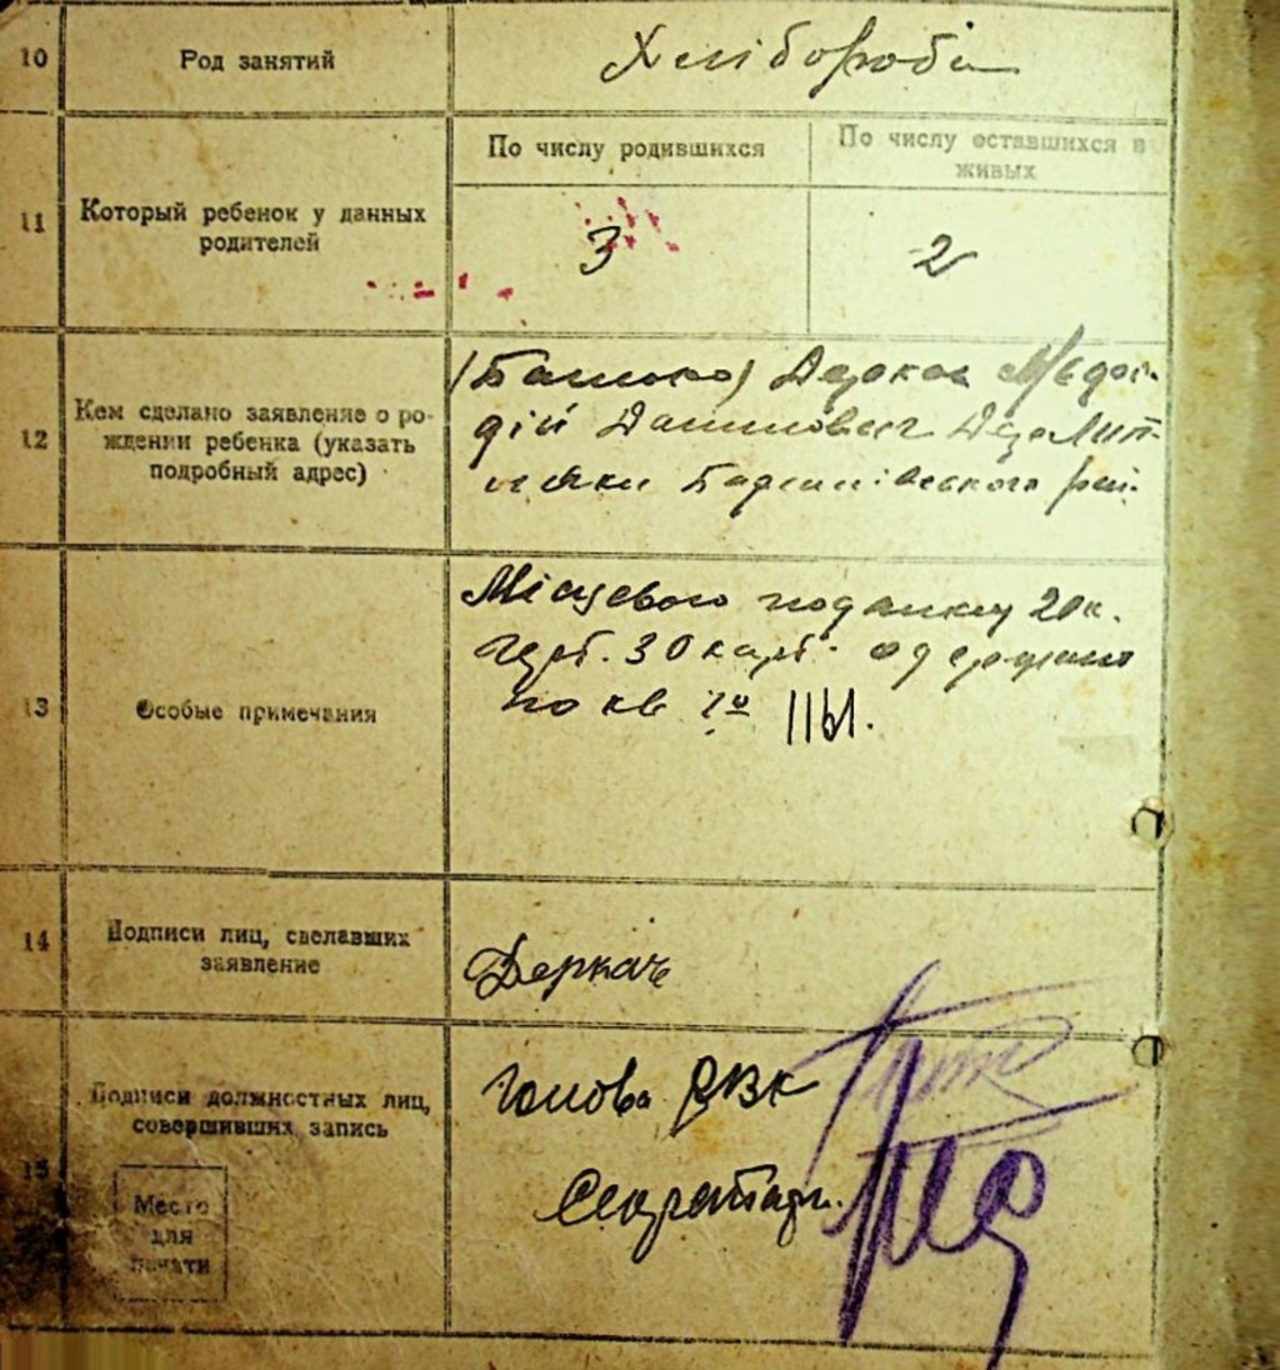 10 Род занятий Хлібороби
По числу родившихся По числу оставшихся в
живых
11 Который ребенок у данных
родителей
3 2
12 Кем сделано заявление о ро-
ждении ребенка (указать
подробный адрес)
(Батько) Деркач
дій Данилович
рай.
13 Особые примечания
Місцевого податку 20к.
герб. 30 карб. одержано
по кв
14 Подписи лиц, сделавших
заявление
Деркач
15 Подписи должностных лиц,
совершивших запись
Голова РВК
Секретарь
Место
для
печати